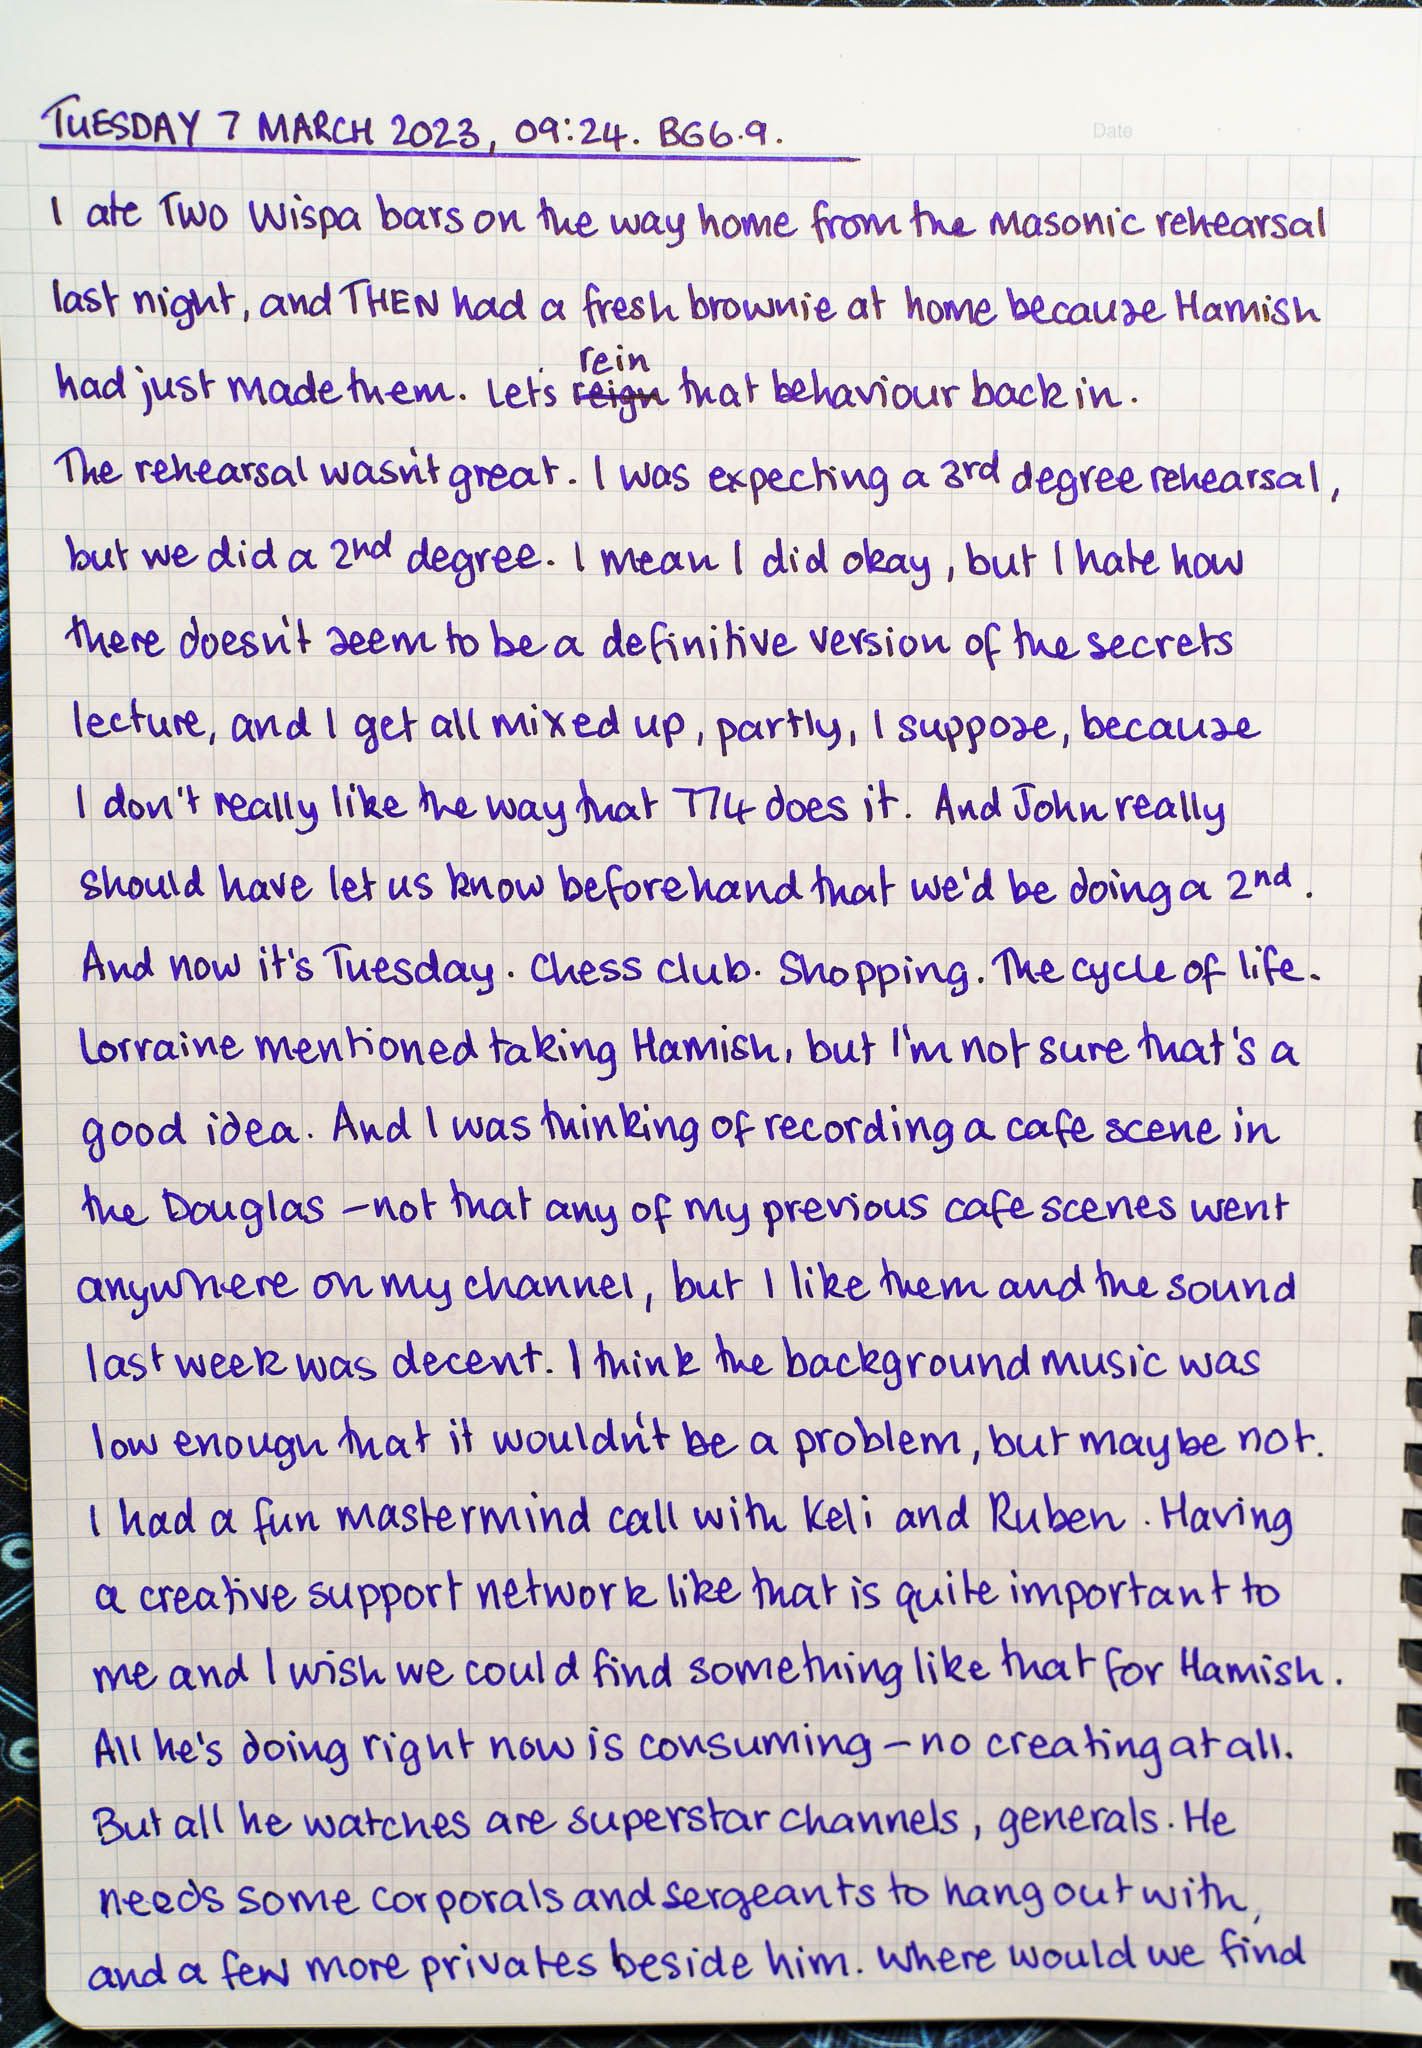 Date
TUESDAY 7 MARCH 2023, 09:24. BG6.9.
I ate TWO Wispa bars on the way home from the Masonic rehearsal
last night, and THEN had a fresh brownie at home because Hamish
rein
had just made them. Let's reign that behaviour back in.
The rehearsal wasn't great. I was expecting a 3rd degree rehearsal,
but we did a 2nd degree. I mean I did okay, but I hate how
there doesn't seem to be a definitive version of the secrets
lecture, and I get all mixed up, partly, I suppose, because
I don't really like the way that 774 does it. And John really
should have let us know beforehand that we'd be doing a 2nd.
And now it's Tuesday. Chess club. Shopping. The cycle of life.
Lorraine mentioned taking Hamish, but I'm not sure that's a
good idea. And I was thinking of recording a cafe scene in
the Douglas – not that any of my previous cafe scenes went
anywhere on my channel, but I like them and the sound
last week was decent. I think the background music was
low enough that it wouldn't be a problem, but maybe not.
I had a fun mastermind call with Keli and Ruben. Having
a creative support network like that is quite important to
me and I wish we could find something like that for Hamish.
All he's doing right now is consuming – no creating at all.
But all he watches are superstar channels, generals. He
needs some corporals and sergeants to hang out with,
and a few more privates beside him. Where would we find